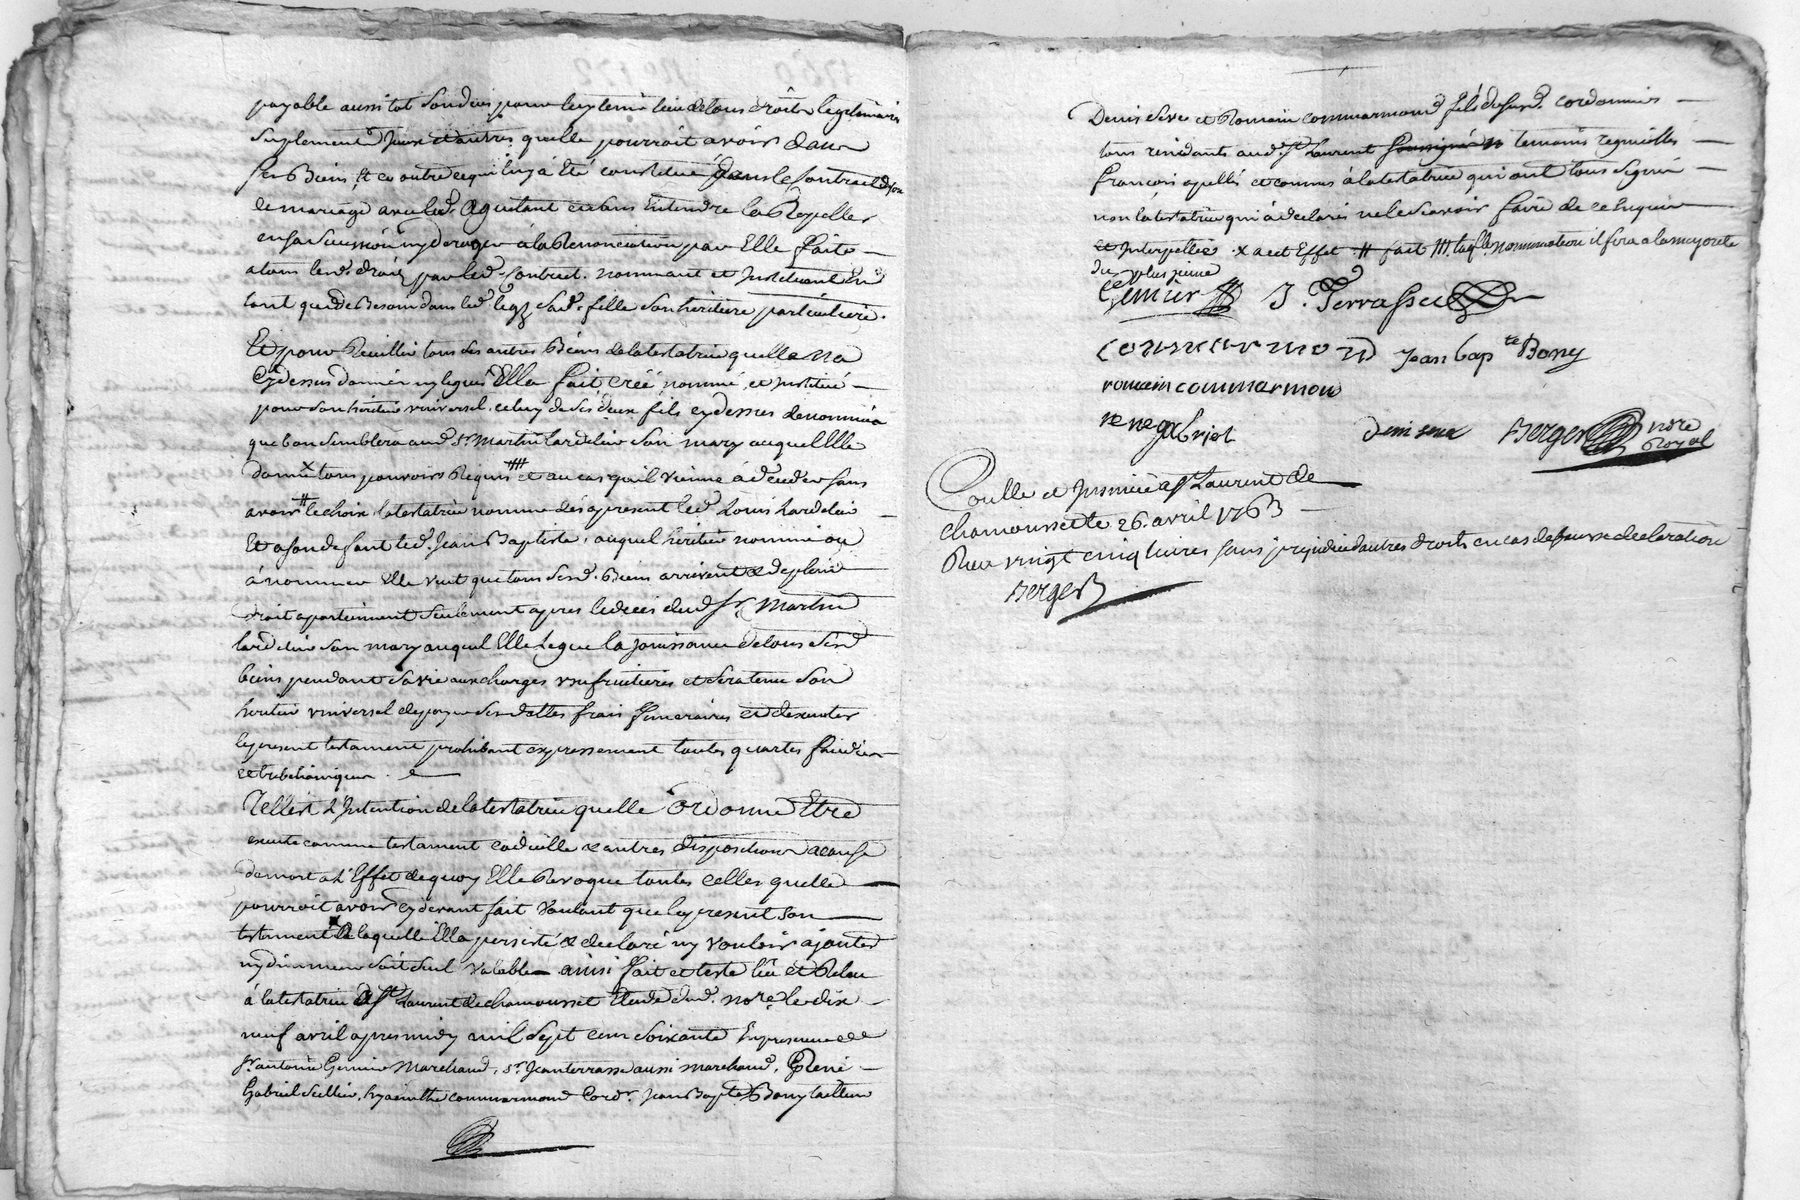 payable aussitot son deces pour luy tenir lieu de tous droits legitimaires
suplement d'jceux et autres quelle pourroit avoir dans
ses Biens, Et ce outre ce qui luy à Eté constitué dans le Contract
de mariage avec led. Aguitant sans Entendre la Rapeller
en sa sucession ny deroger à la Renonciation par Elle faite
a tous lesd. droits par led. Contract. nommant et jnstituant En
tant que de Besoin dans led. legs sad. fille son heritiere particuliere.
Et pour Recuillir tous les autres Biens de la testatrice quelle na
Cy dessus donnés ny legués Elle fait creé nommé et jnstitué
pour son héritier vniversel celuy de ses deux fils cy dessus denommés
que bon semblera aud. sr. Martin Lardelier son mary auquel Elle
donne x tous pouvoirs Requis #// et au cas quil vienne à déceder sans
avoir # le choix la testatrice nomme dès apresent led. Louis Lardelier
Et a son deffaut led. Jean Baptiste, auquel héritier nommé ou
à nommer Elle veut que tous sesd. Biens arrivent & de plein
droit apartiennent seulement apres le deces dud. sr. Martin
Lardelier son mary auquel Elle Legue la jouissance de tous sesd.
biens pendant sa vie aux charges vsufruitieres et sera tenu son
heritier vniversel de payer ses dettes frais funeraires et dexecuter
le present testament prohibant expressement toutes quartes falcidies
et trebellianiques.
Telle est L'Intention de la testatrice quelle ordonne Etre
executé comme testament codicille & autres dispositions a cause
de mort a L'Effet de quoy Elle Revoque toutes celles quelle
pourroit avoir cy devant fait voulant que le present son
testament laquelle Elle persisté & declaré ny vouloir ajouter
ny diminuer soit seul valable ainsi fait et testé lû et Relu
à la testatrice A St Laurent de chamousset Etude dud. nore. le dix
neuf avril apres midy mil sept cens soixante En presence de
sr. antoine Gimier Marchand, sr. Jean terrasse aussi marchand, René
Gabriel Cellier, hyacinthe commarmond Cordr. Jean Bapte. Bony tailleur
Denis seve et Romain commarmond fils dud. cordonnier
tous residants aud. st Laurent soussignés temoins requis
françois apellés et connus à la testatrice qui ont tous signé
non la testatrice qui à declaré ne le scavoir faire de ce Enquise
et interpellée. x a cet Effet # fait #// laqlle. nommation il fera a la majorité
du plus jeune
Gimier J. Terrasse
commarmond jean bap te Bony
romain commarmon
rene gabriel denis seve Berger nore Royal
Controllé et jnsinué à st Laurent de
chamousset le 26. avril 1763
Reçu vingt cinq livres sans prejudice d'autres droits en cas de fausse declaration
Berger